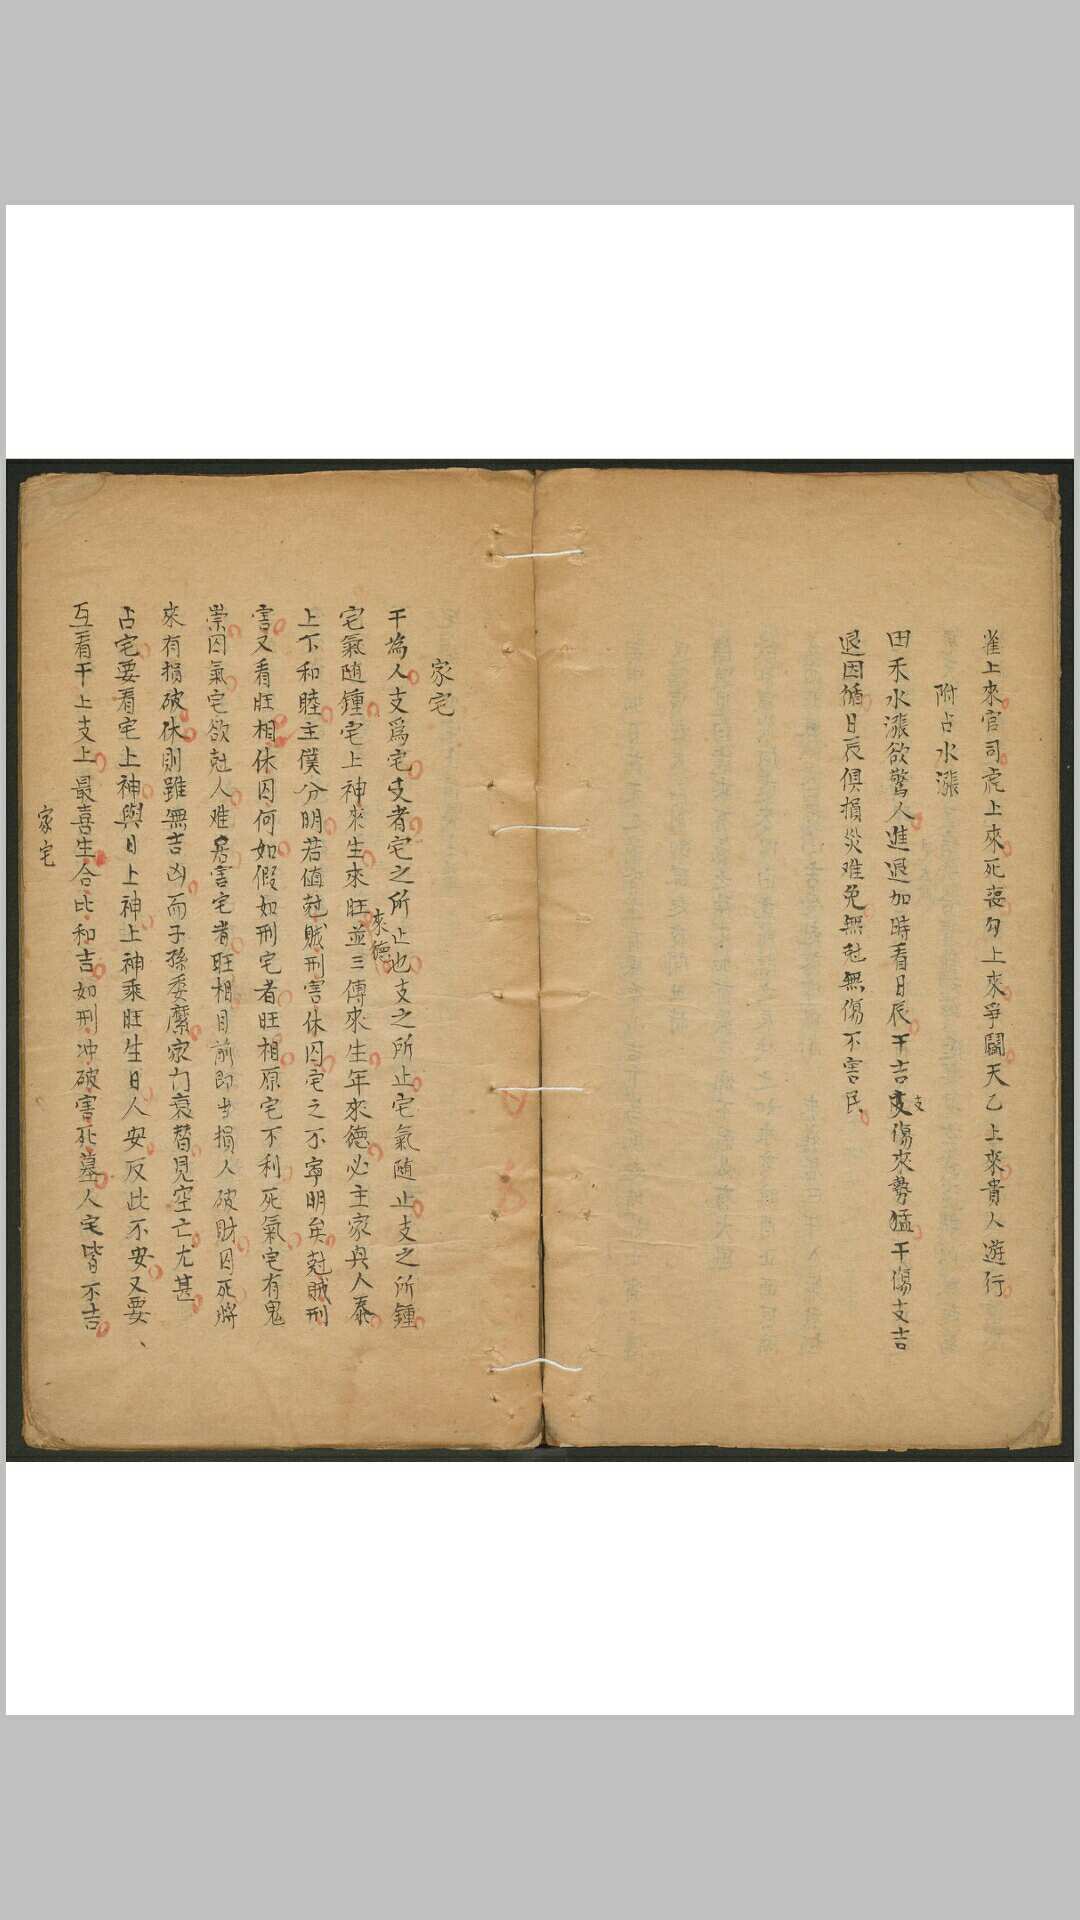 雀上來官司虎上來死喪勾上來爭鬭天乙上來貴人遊行
附占水漲
田禾水漲欲驚人進退加時看日辰干吉支傷來勢猛干傷支吉
支
退因循日辰俱損災难免無尅無傷不害民
家宅
干為人支爲宅支者宅之所止也支之所止宅氣随止支之所鍾
來德
宅氣随鍾宅上神來生來旺並三傳來生年來德必主家興人泰
上下和睦主僕分明若值尅賊刑害休囚宅之不寧明矣尅賊刑
害又看旺相休囚何如假如刑宅者旺相原宅不利死氣宅有鬼
祟囚氣宅欲尅人难居害宅者旺相目前即当損人破財囚死將
來有損破休則雖無吉凶而子孫委靡家门衰替見空亡尤甚
占宅要看宅上神與日上神上神乘旺生日人安反此不安又要、
互看干上支上最喜生合比和吉如刑冲破害死墓人宅皆不吉
家宅